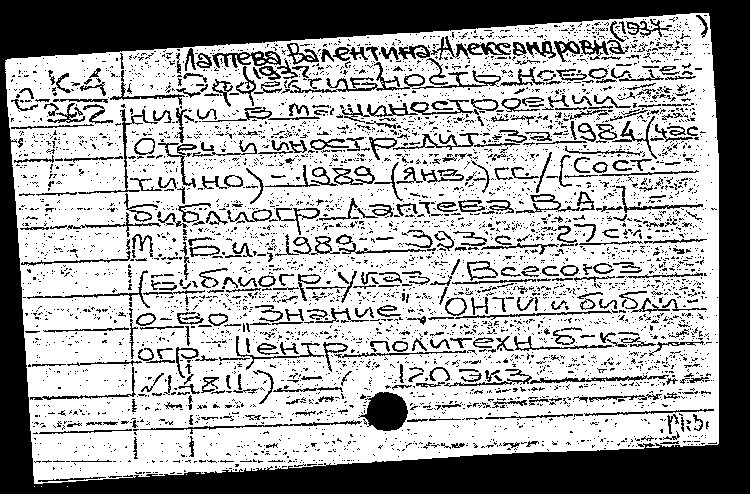 (1937- )
Лаптева, Валентина Александровна
К-4 (1937 )
Эффективность новой тех-
С 362 ники в машиностроении.
Отеч. и иностр. лит. за 1984 (час
тично) - 1989 (янв.) гг. / [Сост.-
библиогр. Лаптева В.А.]. -
М.: Б.и., 1989. - 393 с., 27 см.
(Библиогр. указ. / Всесоюз.
о-во "Знание", ОНТИ и библи-
огр. Центр. политехн. б-ка;
№ 14811). - ( 120 экз.